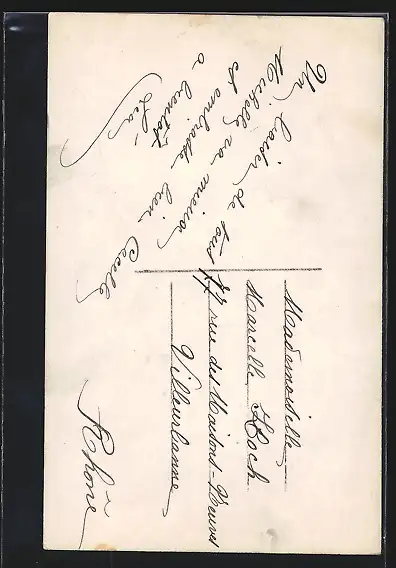 Un baiser de tous
Michelle va mieux
et embrasse bien Cecelle
a bientot
Léa
Mademoiselle
Marcelle Koch
77 rue des Maisons-Neuves
Villeurbanne
Rhône